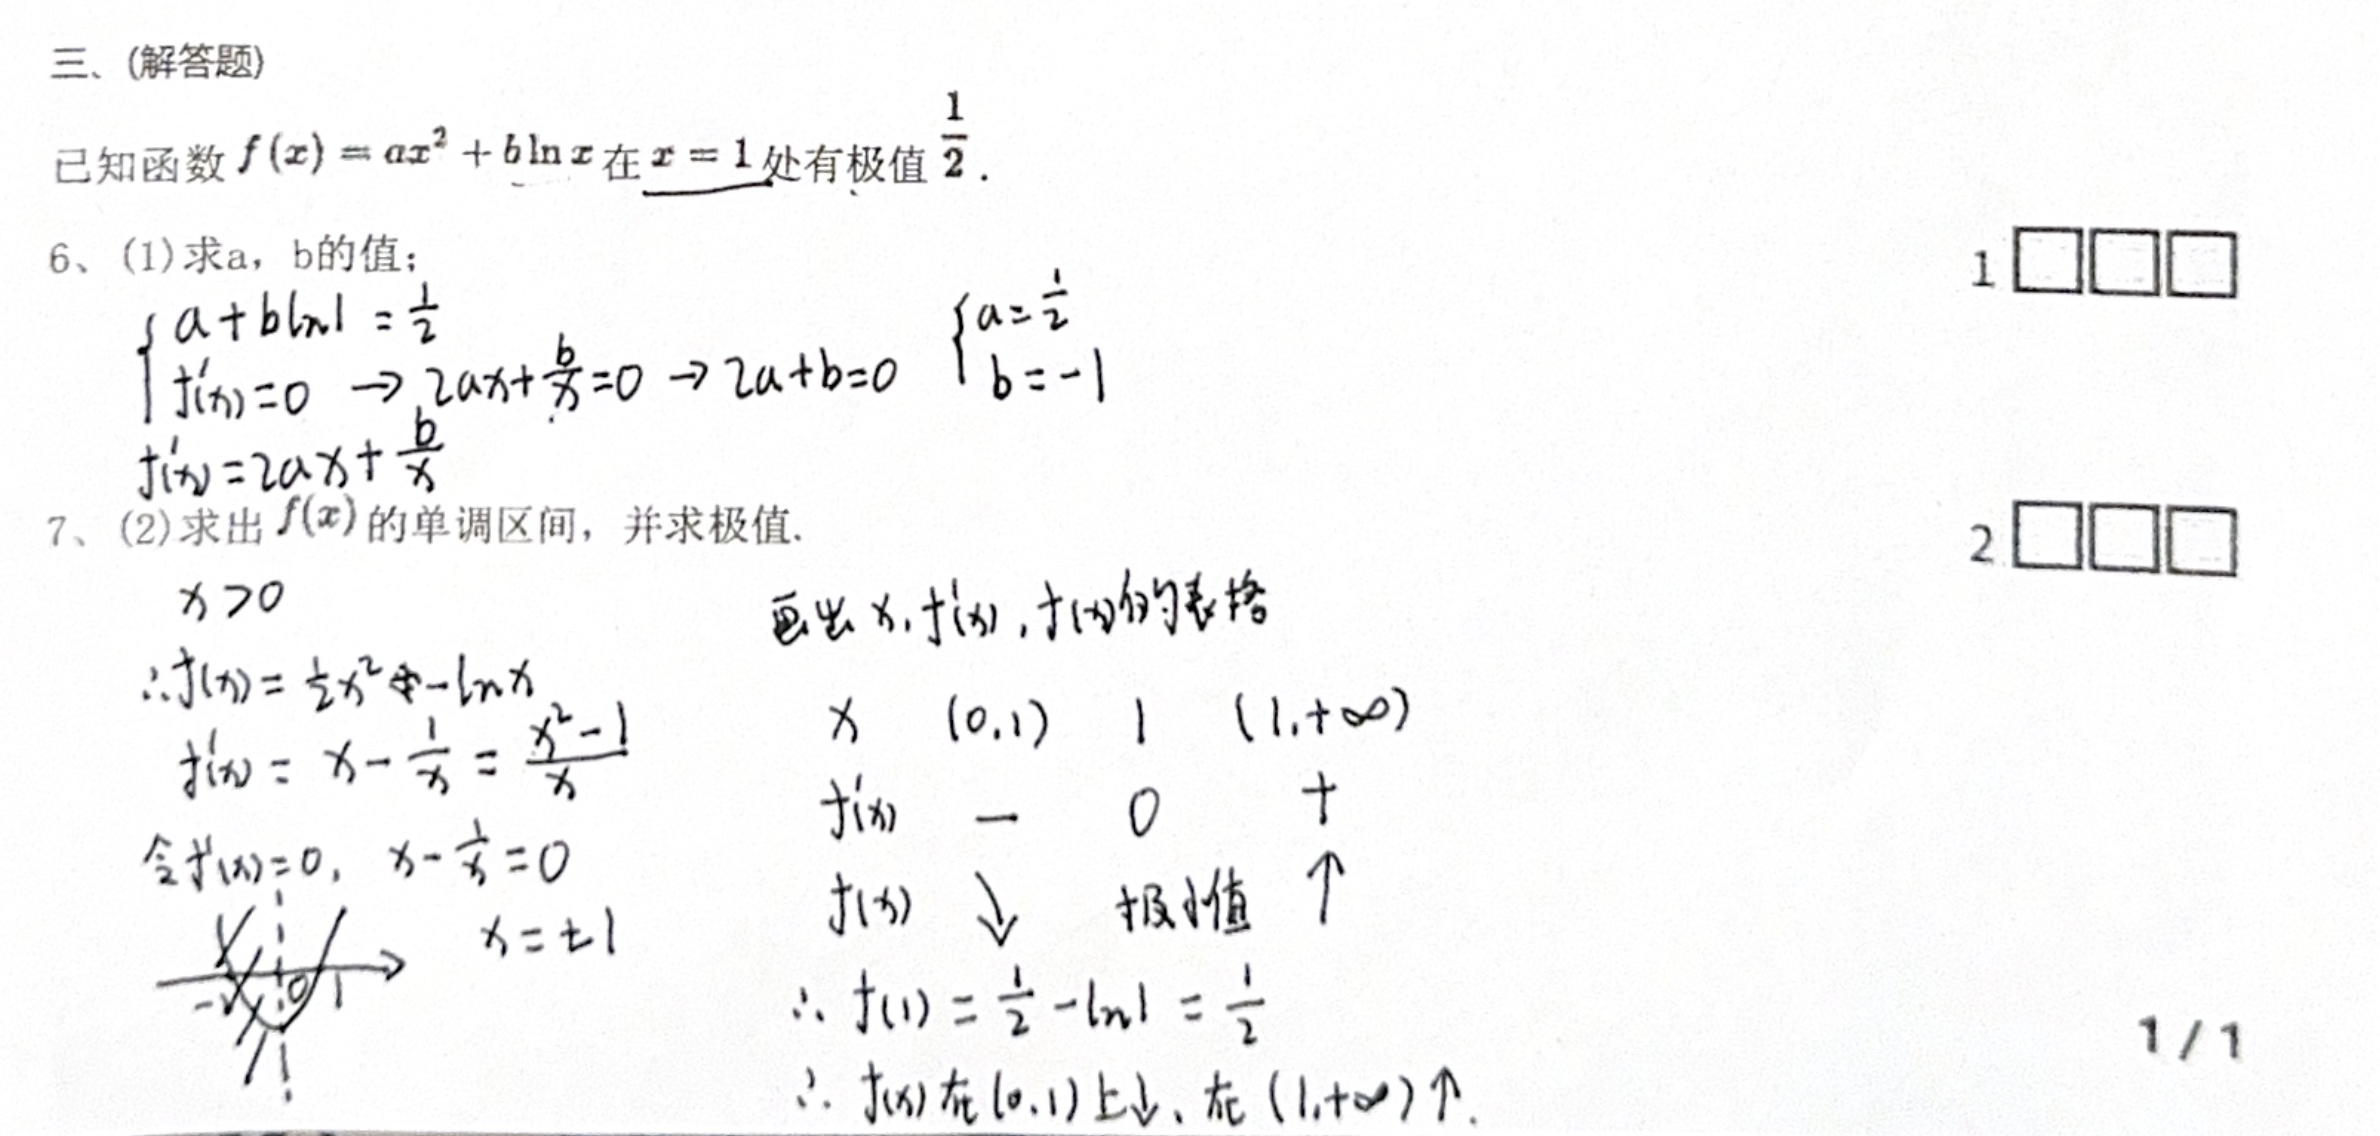 三、(解答题)
已知函数 f(x) = ax² + b ln x 在 x = 1 处有极值 1/2 .
6、(1)求a，b的值；
1 □□□
{ a+bln1 = 1/2
f'(x)=0 → 2ax+b/x=0 → 2a+b=0
{ a=1/2
b=-1
f'(x)=2ax+b/x
7、(2)求出 f(x) 的单调区间，并求极值.
2 □□□
x>0
∴f(x)= 1/2x² -lnx
f'(x)= x-1/x = (x²-1)/x
令f'(x)=0, x-1/x=0
x=±1
-1 0 1
画出x, f'(x), f(x)的表格
x (0,1) 1 (1,+∞)
f'(x) - 0 +
f(x) ↘ 极小值 ↑
∴ f(1) = 1/2 -ln1 = 1/2
∴ f(x)在(0,1)上↓、在(1,+∞)↑.
1 / 1